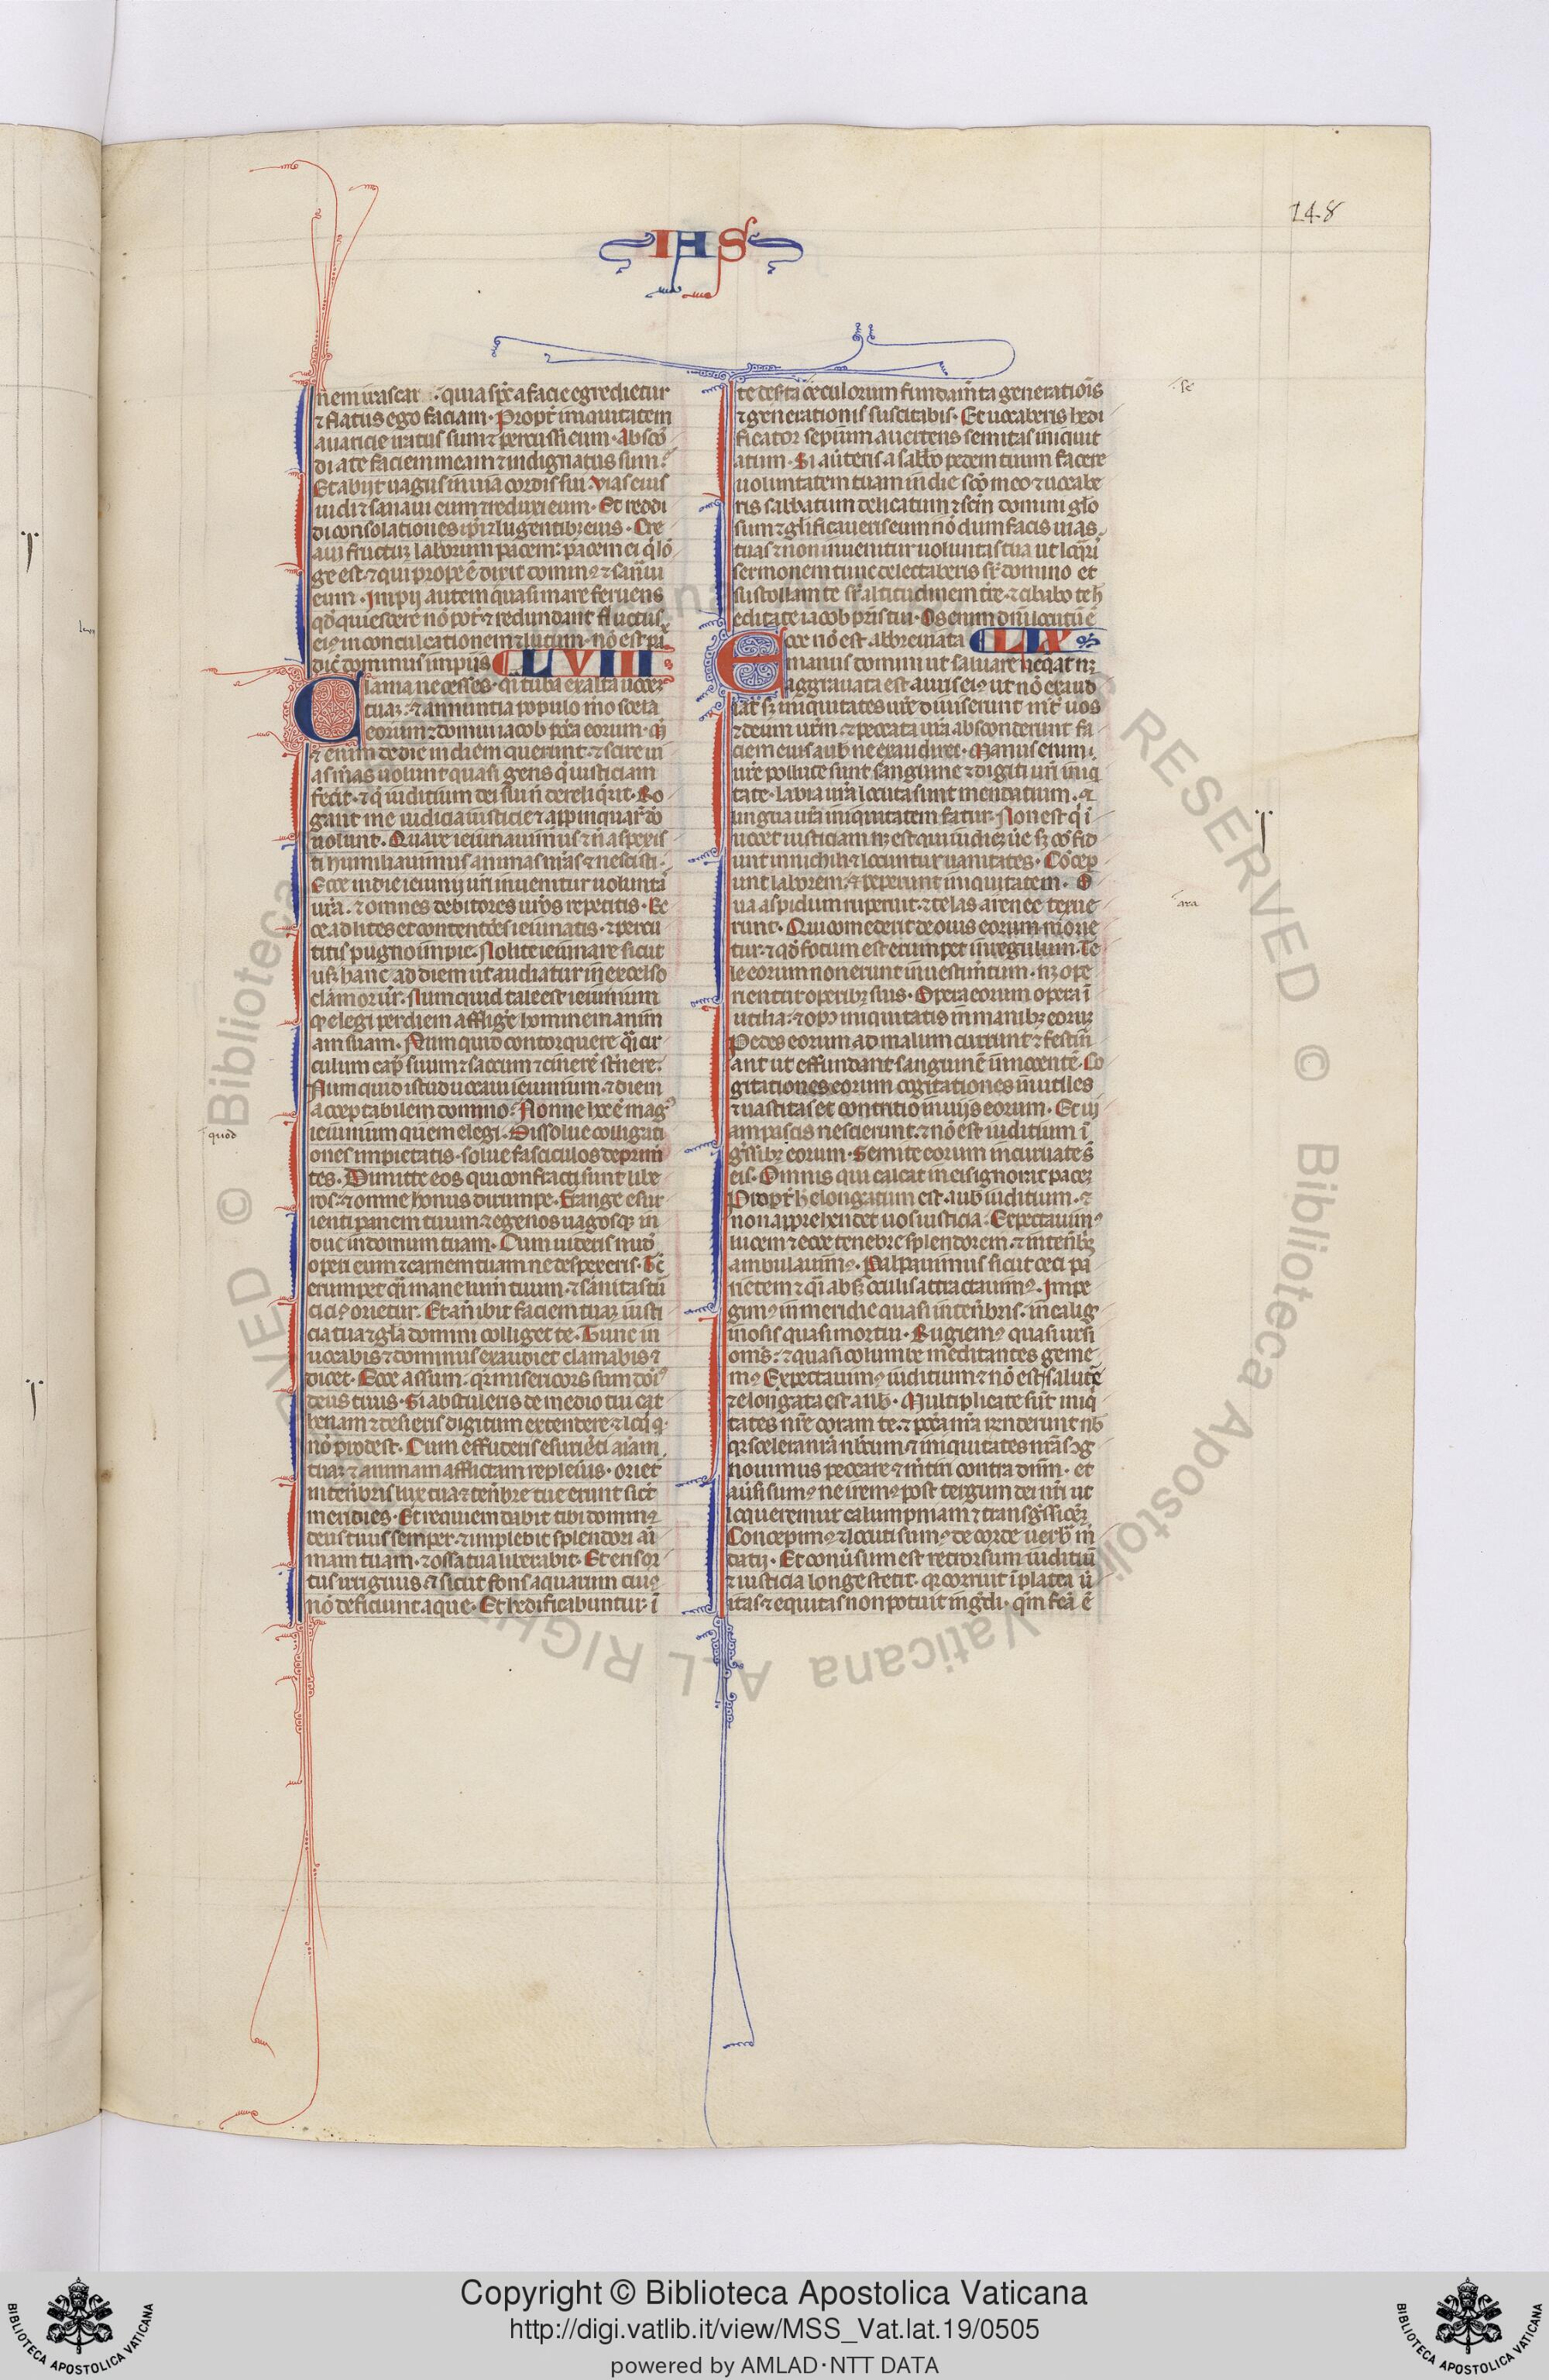 148
IHS
nem irascar quia sp̄s a facie egredietur
⁊ flatus ego faciam. Propt̄ iniquitatem
avaricie iratus sum ⁊ percussi eum. Absco᷒
di a te faciem meam ⁊ indignatus sum.
Et abijt vagus in via cordis sui. Vias eius
uidi ⁊ sanaui eum ⁊ reduxi eum. Et reddi
di consolationes ip̄i ⁊ lugentibꝫ eius. Cre
aui fructuꝫ labiorum pacem: pacem ei q̇ lō
ge est. ⁊ qui prope ē dixit dominꝰ ⁊ sanaui
eum. Impij autem quasi mare feruens
qd̄ quiescere nō pōt ⁊ redundant fluctus
eiꝰ in conculcationem ⁊ lutum. nō est pax
dic̄ dominus impijs LVIII
Clama ne cesses. q̄i tuba exalta uoceꝫ
tuaꝫ. ⁊ annuntia populo m̄o scelera
eorum ⁊ domui iacob pc̄cā eorum. Me
⁊ enim de die in diem querunt. ⁊ scire ui
as m̄as uolunt quasi gens q̄ iusticiam
fecit. ⁊ q̄ iuditium dei sui n̄ dereliq̄rit. Ro
gant me iudicia iusticie ⁊ app̄inquar̄ dō
uolunt. Quare ieiunauimus ⁊ n̄ aspexis
ti humiliauimus animas nr̄as ⁊ nescisti.
Ecce in die ieiunij ur̄i inuenitur uolunta᷒
ur̄a. ⁊ omnes debitores ur̄os repetitis. Ec
ce ad lites et contentōes ieiunatis. ⁊ percu
titis pugno impie. Nolite ieiunare sicut
usqꝫ hanc ad diem ut audiatur in excelso
clamor ur̄. Numquid tale est ieiunium
qd̄ elegi per diem affligē hominem anim̄
am suam. Numquid contorquere q̄i cir
culum cap̄ suum ⁊ saccum ⁊ cinere st̄nere.
Numquid istud uocaui ieiunium. ⁊ diem
acceptabilem domino. Nonne hoc ē mag̓
ieiunium quem elegi. Dissolue colligati
ones impietatis. solue fasciculos deprim̄
tes. Dimitte eos qui confracti sunt libe
ros. ⁊ omne honus dirumpe. Frange esur
ienti panem tuum ⁊ egenos uagosqꝫ in
duc in domum tuam. Cum uideris nudū
operi eum ⁊ carnem tuam ne despexeris. Tc̄
erumpet q̄i mane lum̄ tuum. ⁊ sanitas tu᷒
citiꝰ orietur. Et an̄ ibit faciem tuaꝫ iusti
cia tua ⁊ gl̄a domini colliget te. Tunc in
uocabis ⁊ dominus exaudiet clamabis ⁊
dicet. Ecce assum: qr̄ misericors sum dn̄s
deus tuus. Si abstuleris de medio tui cat
henam ⁊ desieris digitum extendere ⁊ loq̄ q̇
nō prodest. Cum effuderis esuriēti aīam
tuaꝫ ⁊ animam afflictam repleuīs. oriet᷒
in tenebris lux tua ⁊ tenebre tue erunt sict᷒
meridies. Et requiem dabit tibi dominꝰ
deus tuus semper. ⁊ implebit splendori ai᷒
mam tuam. ⁊ ossa tua liberabit. Et eris or
tus irriguus. ⁊ sicut fons aquarum cuiꝰ
nō deficiunt aque. Et hedificabuntur. ī
quod
te deserta seculorum fundam̄ta generatiōis
⁊ generationis suscitabis. Et uocaberis hedi
ficator sepium auertens semitas iniquit
atum. Si auteris a sabbō pedem tuum facere
uoluntatem tuam in die sc̄o meo ⁊ uocabe
ris sabbatum delicatum ⁊ sc̄m domini glō
sum ⁊ gl̄ificaueris eum nō dum facis uias
tuas ⁊ non inuenitur uoluntas tua ut loq̄ris
sermonem tunc delectaberis sr̄ domino et
sustollam te sr̄ altitudinem tr̄e. ⁊ cibabo te h
editate iacob pr̄is tui. Os enim dn̄i locutū ē
Ecce nō est abbreuiata LIX
manus domini ut saluare neq̄at nꝫ
aggrauata est auris eiꝰ ut nō exaud
iat. sꝫ iniquitates ur̄e diuiserunt int̄ uos
⁊ deum ur̄m. ⁊ peccata ur̄a absconderunt fa
ciem eius a uob̄ ne exaudiret. Manus enim
ur̄e pollute sunt sanguine ⁊ digiti ur̄i iniq̇
tate. Labia ur̄a locuta sunt mendatium. ⁊ l
ingua ur̄a iniquitatem fatur. Non est q̇ ī
uocet iusticiam nꝫ est qui iudicꝫ ūe sꝫ cōfid
unt in nichili ⁊ locuntur uanitates. Cōcep
unt laborem. ⁊ pepererunt iniquitatem. O
ua aspidum ruperunt. ⁊ telas aranee texue
runt. Qui comederit de ouis eorum morie
tur. ⁊ qd̄ fotum est erumpet in regulum. Te
le eorum non erunt in uestim̄tum. nꝫ ope
rientur operibꝫ suis. Opera eorum opera ī
utilia: ⁊ opꝰ iniquitatis in manibꝫ eorum
Pedes eorum ad malum currunt ⁊ festin᷒
ant ut effundant sanguinē innocentē. Co
gitationes eorum cogitationes inutiles
⁊ uastitas et contritio in uijs eorum. Et ui
am pascis nescierunt. ⁊ nō est iuditium ī
gr̄ssibꝫ eorum. Semite eorum incuruate s᷒
eis. Omnis qui calcat in eis ignorat paceꝫ
Propt̄ h̄ elongatum est a uob̄ iuditium. ⁊
non apprehendet uos iusticia. Expectauim̓
lucem ⁊ ecce tenebre splendorem. ⁊ in tenebꝫ
ambulauimꝰ. Palpauimus sicut ceci pa
rietem ⁊ q̄i absqꝫ oculis attractauimꝰ. Impe
gimꝰ in meridie quasi in tenebris. in calig
inosis quasi mortui. Rugiemꝰ quasi ursi
om̄s. ⁊ quasi columbe meditantes geme
mꝰ. Expectauimꝰ iuditium ⁊ nō est. salutē
⁊ elongata est a nob̄. Multiplicate sūt iniq̇
tates nr̄e coram te. ⁊ pc̄cā nr̄a rn̄derunt nob̄
qr̄ scelera nr̄a nob̄cum. ⁊ iniquitates nr̄as ꝯg
nouimus peccare ⁊ m̄tiri contra dn̄m. et
auersi sumꝰ ne iremꝰ post tergum dei nr̄i ut
loqueremur calumpniam ⁊ transgr̄ssioneꝫ
Concepimꝰ ⁊ locuti sumꝰ de corde uerb̄ m᷒
datij. Et conuersum est retrorsum iuditiū
⁊ iusticia longe stetit. qr̄ corruit ī platea u᷒
itas. ⁊ equitas non potuit ingr̄di. qm̄ fc̄a ē
Copyright © Biblioteca Apostolica Vaticana
http://digi.vatlib.it/view/MSS_Vat.lat.19/0505
powered by AMLAD·NTT DATA
BIBLIOTECA APOSTOLICA VATICANA
BIBLIOTECA APOSTOLICA VATICANA